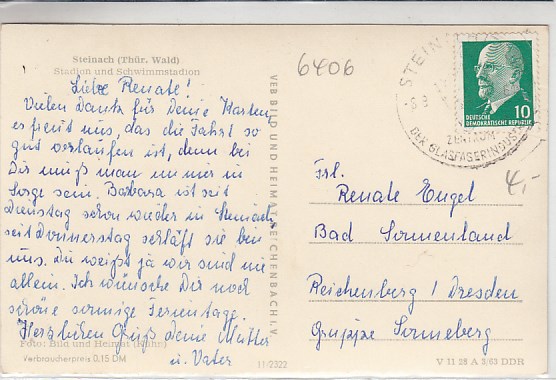 Steinach (Thür. Wald)
Stadion und Schwimmstadion
Liebe Renate!
Vielen Dank für Deine Karten
es freut uns, das die Fahrt so
gut verlaufen ist, denn bei
Dir muß man immer in
Sorge sein. Barbara ist seit
Dienstag schon wieder in
seit Donnerstag schläft sie bei
uns. Du weißt ja wir sind nie
allein. Ich wünsche Dir noch
schöne sonnige Ferientage.
Herzlichen Gruß Deine Mutter
u. Vater
Foto: Bild und Heimat (Kühn)
Verbraucherpreis 0,15 DM
VEB BILD UND HEIMAT REICHENBACH I. V.
11/2322
6406
STEINACH
ZENTRUM
DER GLASFASERINDUSTRIE
10
DEUTSCHE
DEMOKRATISCHE REPUBLIK
4,-
Frl.
Renate Engel
Bad Sonnenland
Reichenberg / Dresden
Gruppe Sonneberg
V 11 28 A 2/63 DDR